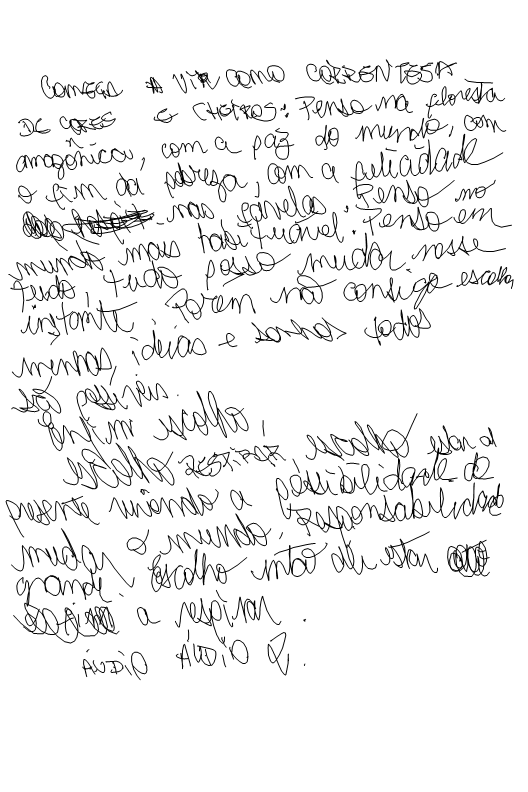 COMEÇA A VIR COMO CORRENTESA
DE CORES E CHEIROS: Penso na floresta
amazônica, com a paz do mundo, com
o fim da pobreza, com a felicidade
nas favelas. Penso no
mundo mais habitável. Penso em
tudo, tudo posso mudar nesse
instante. Porem não consigo escolher
minhas, ideias e sonhos todos
são possíveis.
Enfim escolho,
escolho RESPIRAR escolho estar ali
presente vivendo a possibilidade de
mudar o mundo. Responsabilidade
grande. Escolho então de estar
a respirar.
ÁUDIO ÁUDIO